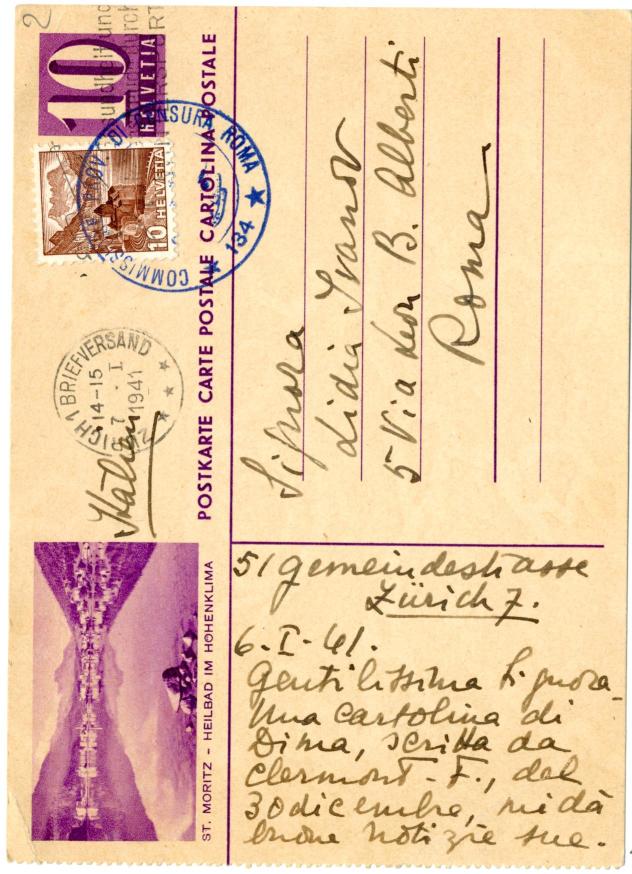 2
10
HELVETIA
10 HELVETIA
COMMISS PROV. DI CENSURA ROMA
★ 134 ★
ZÜRICH 1 BRIEFVERSAND
14-15
7. I
1941
Italien
POSTKARTE CARTE POSTALE CARTOLINA POSTALE
ST. MORITZ – HEILBAD IM HÖHENKLIMA
Signora
Lidia Ivanov
5 Via Leon B. Alberti
Roma
51 Gemeindestrasse
Zürich 7.
6-I-41.
Gentilissima Signora
Una cartolina di
Dima, scritta da
Clermont-F., del
30 dicembre, mi dà
buone notizie sue.